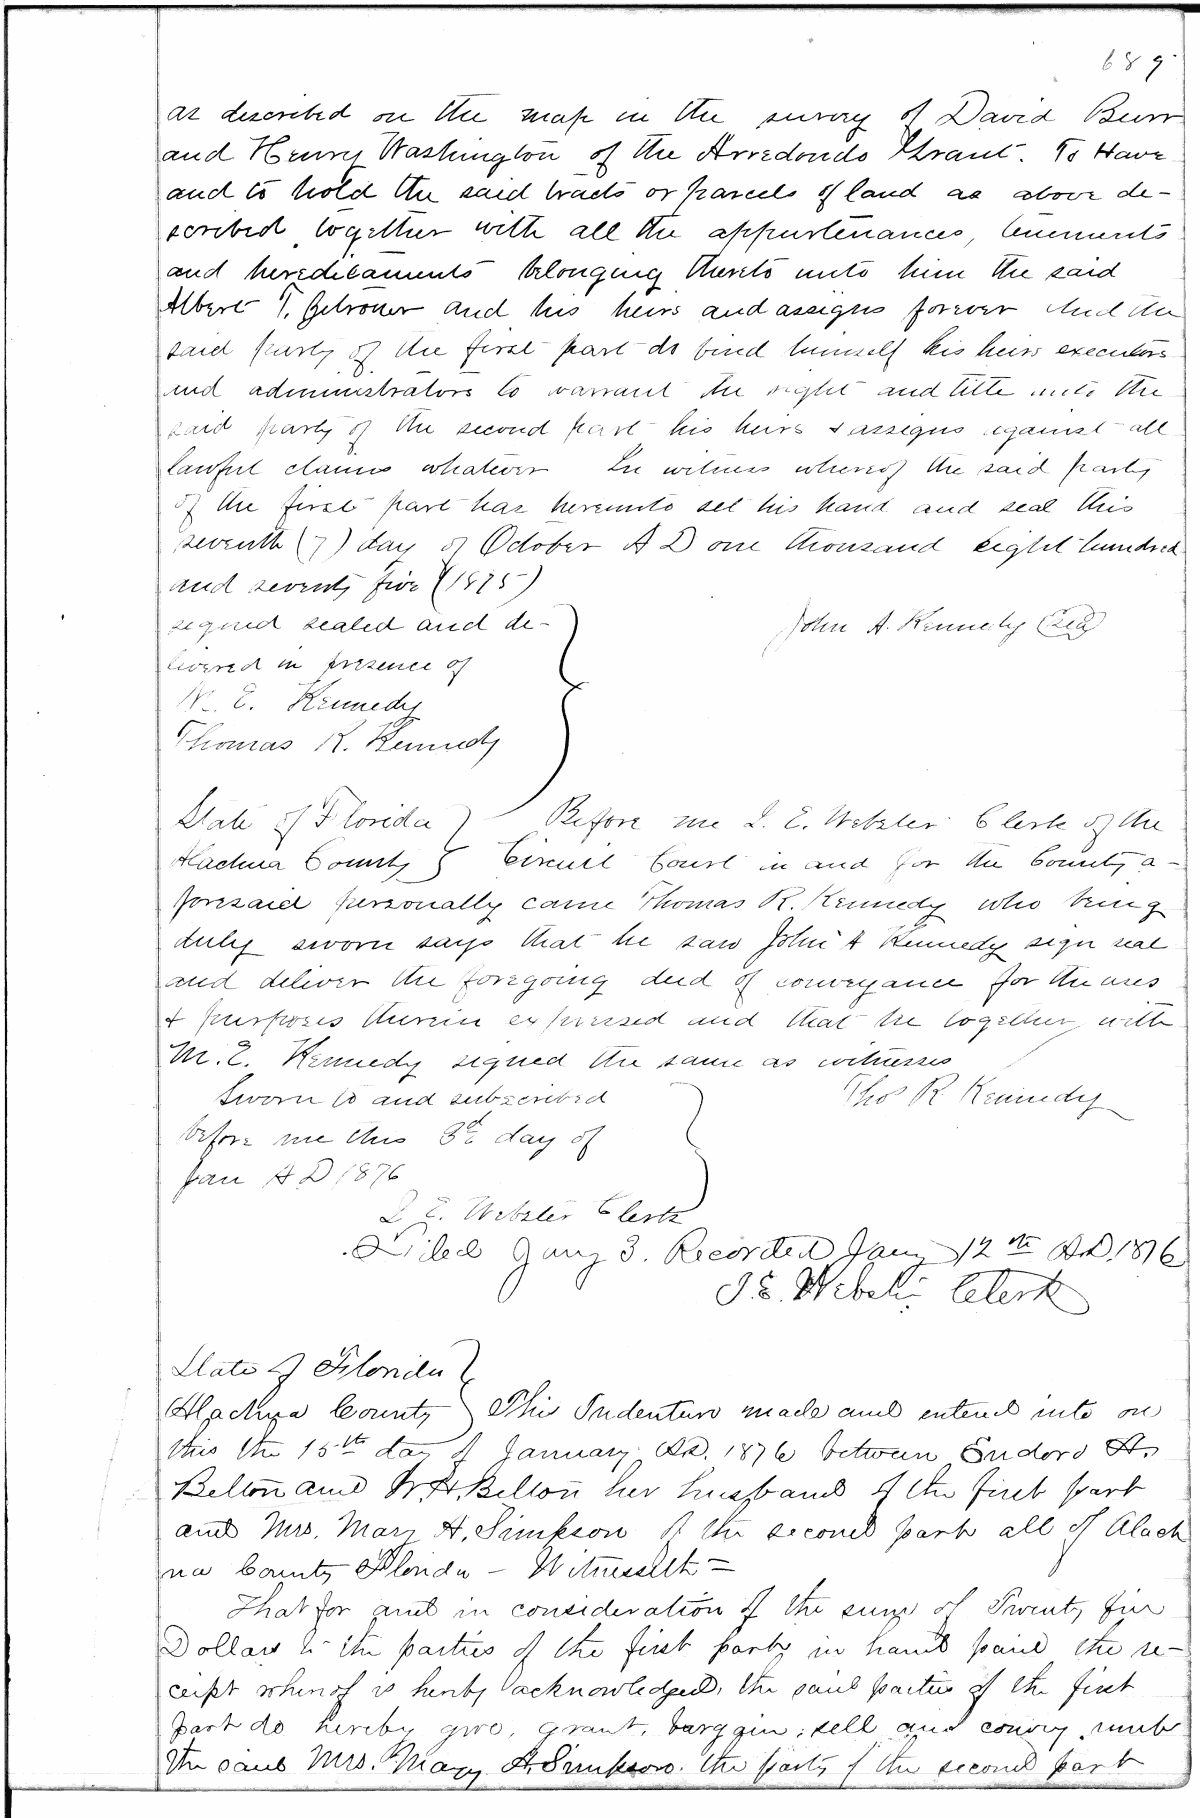 689
as described on the map in the survey of David Burr
and Henry Washington of the Arredondo Grant. To Have
and to hold the said tracts or parcels of land as above de-
scribed together with all the appurtenances, tenements
and hereditaments belonging thereto unto him the said
Albert T. and his heirs and assigns forever And the
said party of the first part do bind himself his heirs executors
and administrators to warrant the right and title unto the
said party of the second part his heirs & assigns against all
lawful claims whatever In witness whereof the said party
of the first part has hereunto set his hand and seal this
seventh (7) day of October A D one thousand eight hundred
and seventy five (1875)
signed sealed and de- John A. Kennedy (Seal)
livered in presence of
M. E. Kennedy
Thomas R. Kennedy
State of Florida Before me I. E. Webster Clerk of the
Alachua County Circuit Court in and for the County a-
foresaid personally came Thomas R. Kennedy who being
duly sworn says that he saw John A Kennedy sign seal
and deliver the foregoing deed of conveyance for the uses
& purposes therein expressed and that he together with
M. E. Kennedy signed the same as witnesses
Sworn to and subscribed Thos R Kennedy
before me this 3d day of
Jan A D 1876
I E. Webster Clerk
Filed Jany 3. Recorded Jany 12th A.D. 1876
I. E. Webster Clerk
State of Florida
Alachua County This Indenture made and entered into on
this the 15th day of January A.D. 1876 between A.
Belton and W. H. Belton her husband of the first part
and Mrs. Mary A. Simpson of the second part all of Alach
ua County Florida - Witnesseth =
That for and in consideration of the sum of Twenty five
Dollars to the parties of the first part in hand paid the re-
ceipt whereof is hereby acknowledged, the said parties of the first
part do hereby give, grant, bargain, sell and convey unto
the said Mrs. Mary A. Simpson. the party of the second part